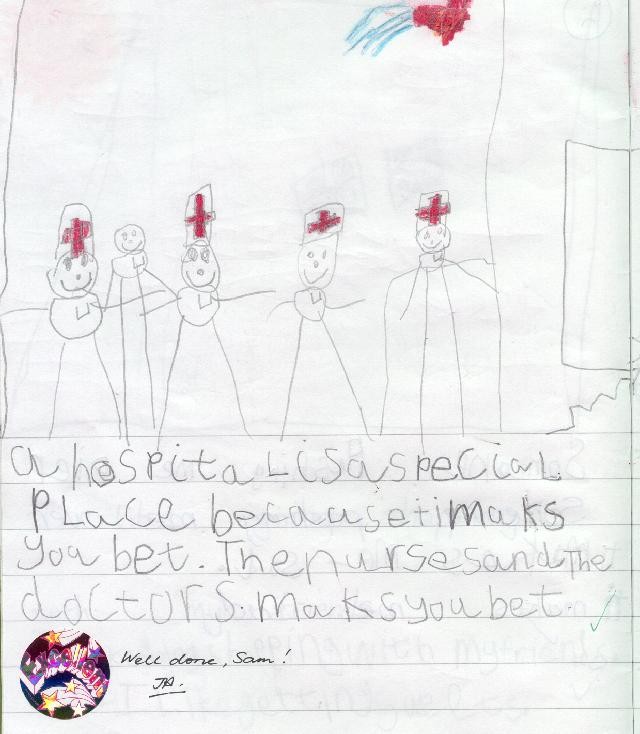 a hospitaL isaspeciaL
PLace becausetimaks
You bet. Thenursesand The
doctors. maksyoubet.
Excellent
Well done, Sam!
JA.